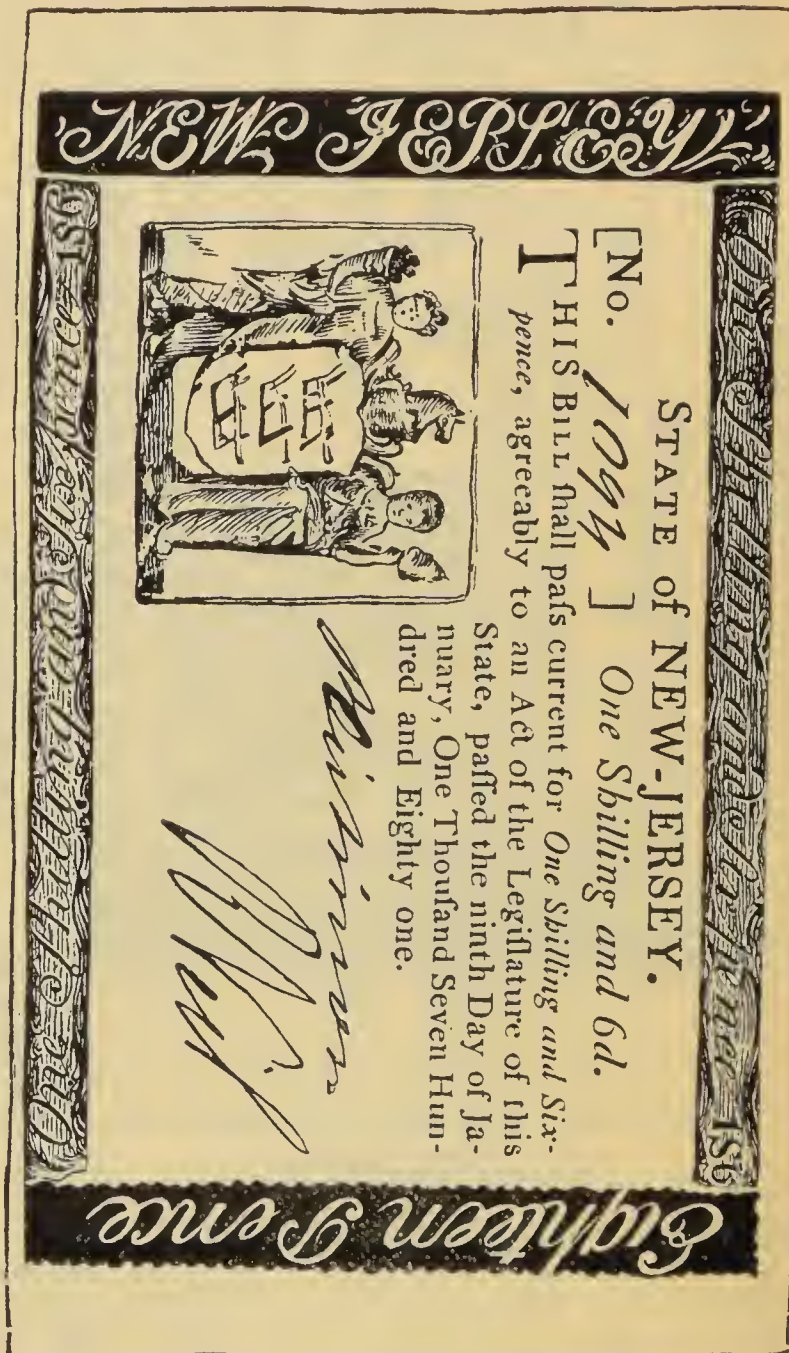 One Shilling and Six pence 1S6
NEW JERSEY
STATE of NEW-JERSEY.
[No. ] One Shilling and 6d.
THIS BILL ſhall paſs current for One Shilling and Six-
pence, agreeably to an Act of the Legiſlature of this
State, paſſed the ninth Day of Ja-
nuary, One Thouſand Seven Hun-
dred and Eighty one.
Eighteen Pence
One Shilling and Six pence 1S6